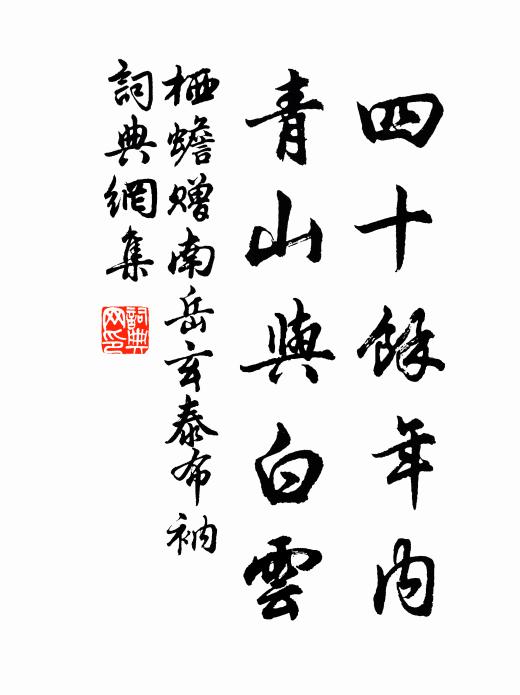 四十餘年内
青山與白雲
栖蟾贈南岳玄泰布衲
詞典網集
詞典网印